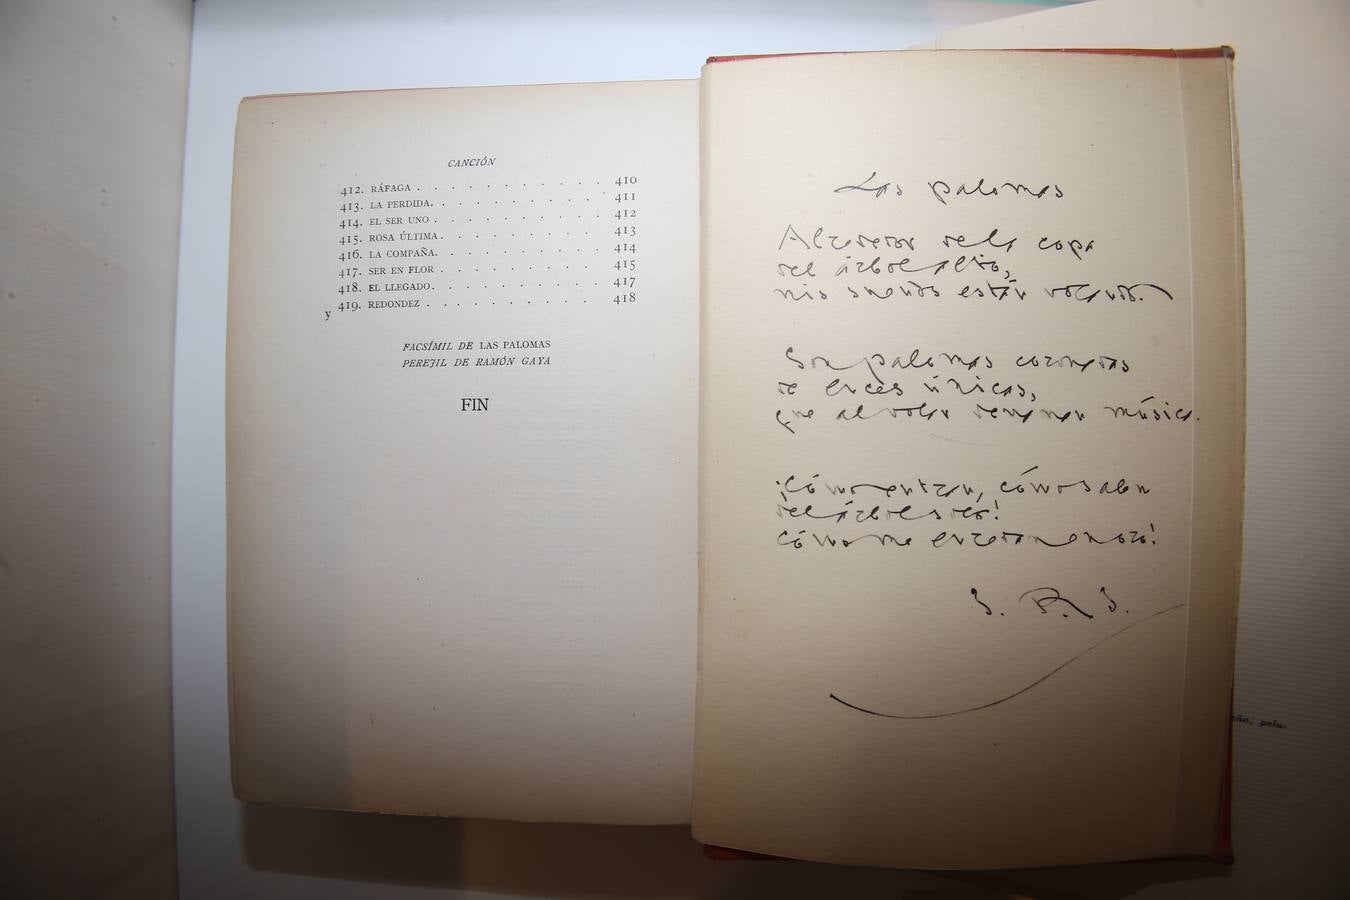 CANCIÓN
412. RÁFAGA . . . . . . . . . . . 410
413. LA PERDIDA. . . . . . . . . . 411
414. EL SER UNO . . . . . . . . . . 412
415. ROSA ÚLTIMA. . . . . . . . . 413
416. LA COMPAÑA. . . . . . . . . . 414
417. SER EN FLOR . . . . . . . . . 415
418. EL LLEGADO. . . . . . . . . . 417
y 419. REDONDEZ . . . . . . . . . . 418
FACSÍMIL DE LAS PALOMAS
PEREJIL DE RAMÓN GAYA
FIN
Las palomas
Alrededor de la copa
del árbol alto,
mis sueños están volando.
Son palomas coronadas
de luces únicas,
que al volar derraman música.
¡Cómo entran, cómo salen
del árbol solo!
Cómo me enredan en oro!
J. R. J.
eño, pelu-